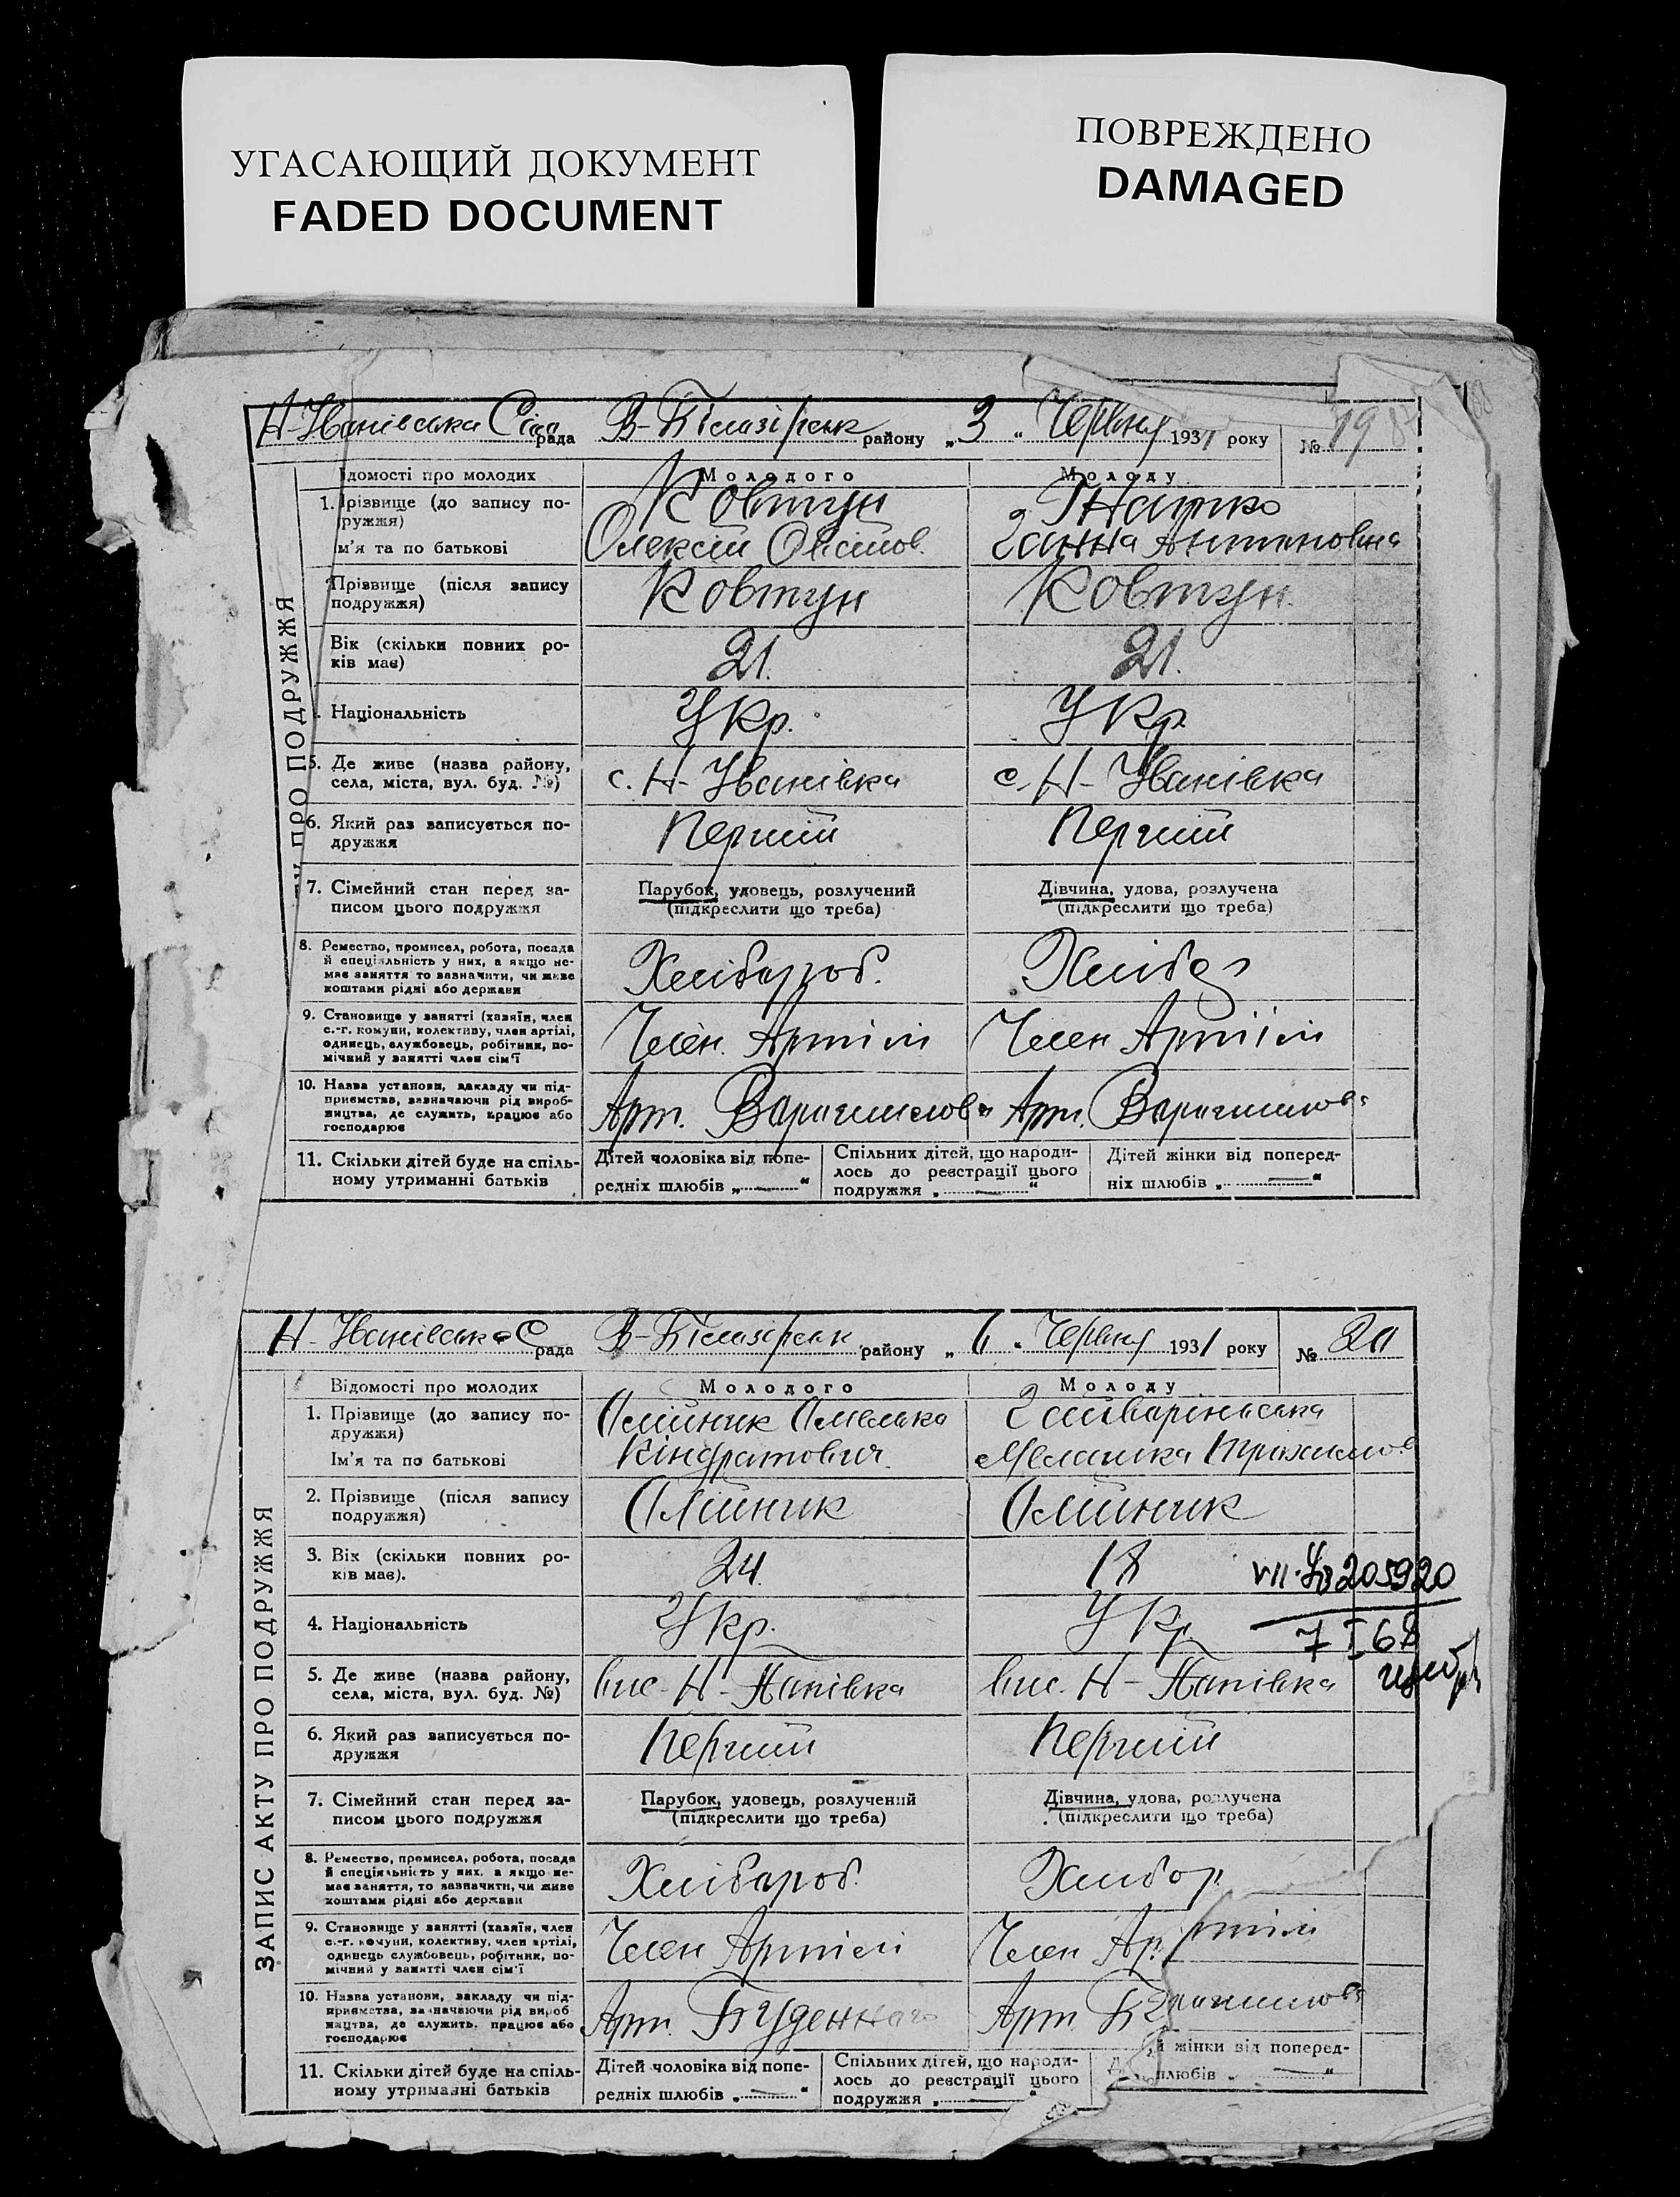 УГАСАЮЩИЙ ДОКУМЕНТ
FADED DOCUMENT
ПОВРЕЖДЕНО
DAMAGED
Н-Іванівська Сіл. рада В-Білозірськ району „3“ Червня 1931 року № 19
ПРО ПОДРУЖЖЯ
ідомості про молодих Молодого Молоду
1. Прізвище (до запису по- Ковтун Гнатко
ружжя)
м'я та по батькові Олексій Ганна Антоновна
Прізвище (після запису Ковтун Ковтун
подружжя)
Вік (скільки повних ро- 21. 21.
ків має)
Національність Укр. Укр.
5. Де живе (назва району, с. Н-Іванівка с. Н-Іванівка
села, міста, вул. буд. №)
6. Який раз записується по- Перший Перший
дружжя
7. Сімейний стан перед за- Парубок, удовець, розлучений Дівчина, удова, розлучена
писом цього подружжя (підкреслити що треба) (підкреслити що треба)
8. Ремество, промисел, робота, посада
й спеціяльність у них, а якщо не- Хлібороб.
має заняття то зазначити, чи живе
коштами рідні або держави
9. Становище у занятті (хазяїн, член
с.-г. комуни, колективу, член артілі, Член Артілі Член Артілі
одинець, службовець, робітник, по-
мічний у занятті член сім'ї
10. Назва установи, закладу чи під-
приємства, зазначаючи рід вироб- Арт. Ворошилова Арт. Ворошилова
ництва, де служить, працює або
господарює
11. Скільки дітей буде на спіль- Дітей чоловіка від попе- Спільних дітей, що народи- Дітей жінки від поперед-
ному утриманні батьків редніх шлюбів „—“ лось до реєстрації цього ніх шлюбів „—“
подружжя „—“
Н-Іванівська С рада В-Білозірськ району „ “ Червня 1931 року № 20
ЗАПИС АКТУ ПРО ПОДРУЖЖЯ
Відомості про молодих Молодого Молоду
1. Прізвище (до запису по- Олійник Омелько
дружжя)
Ім'я та по батькові Кіндратович Меланка
2. Прізвище (після запису Олійник Олійник
подружжя)
3. Вік (скільки повних ро- 24. 18 205920
ків має).
4. Національність Укр. Укр. 7 I 68
5. Де живе (назва району, вис. Н-Панівка вис. Н-Панівка
села, міста, вул. буд. №)
6. Який раз записується по- Перший Перший
дружжя
7. Сімейний стан перед за- Парубок, удовець, розлучений Дівчина, удова, розлучена
писом цього подружжя (підкреслити що треба) (підкреслити що треба)
8. Ремество, промисел, робота, посада
й спеціяльність у них, а якщо не- Хлібороб. Хлібор
має заняття, то зазначити, чи живе
коштами рідні або держави
9. Становище у занятті (хазяїн, член
с.-г. комуни, колективу, член артілі, Член Артілі Член Артілі
одинець службовець, робітник, по-
мічний у занятті член сім'ї
10. Назва установи, закладу чи під-
приємства, зазначаючи рід вироб- Арт. Буденного Арт.
ництва, де служить, працює або
господарює
11. Скільки дітей буде на спіль- Дітей чоловіка від попе- Спільних дітей, що народи- й жінки від поперед-
ному утриманні батьків редніх шлюбів „—“ лось до реєстрації цього шлюбів „—“
подружжя „—“